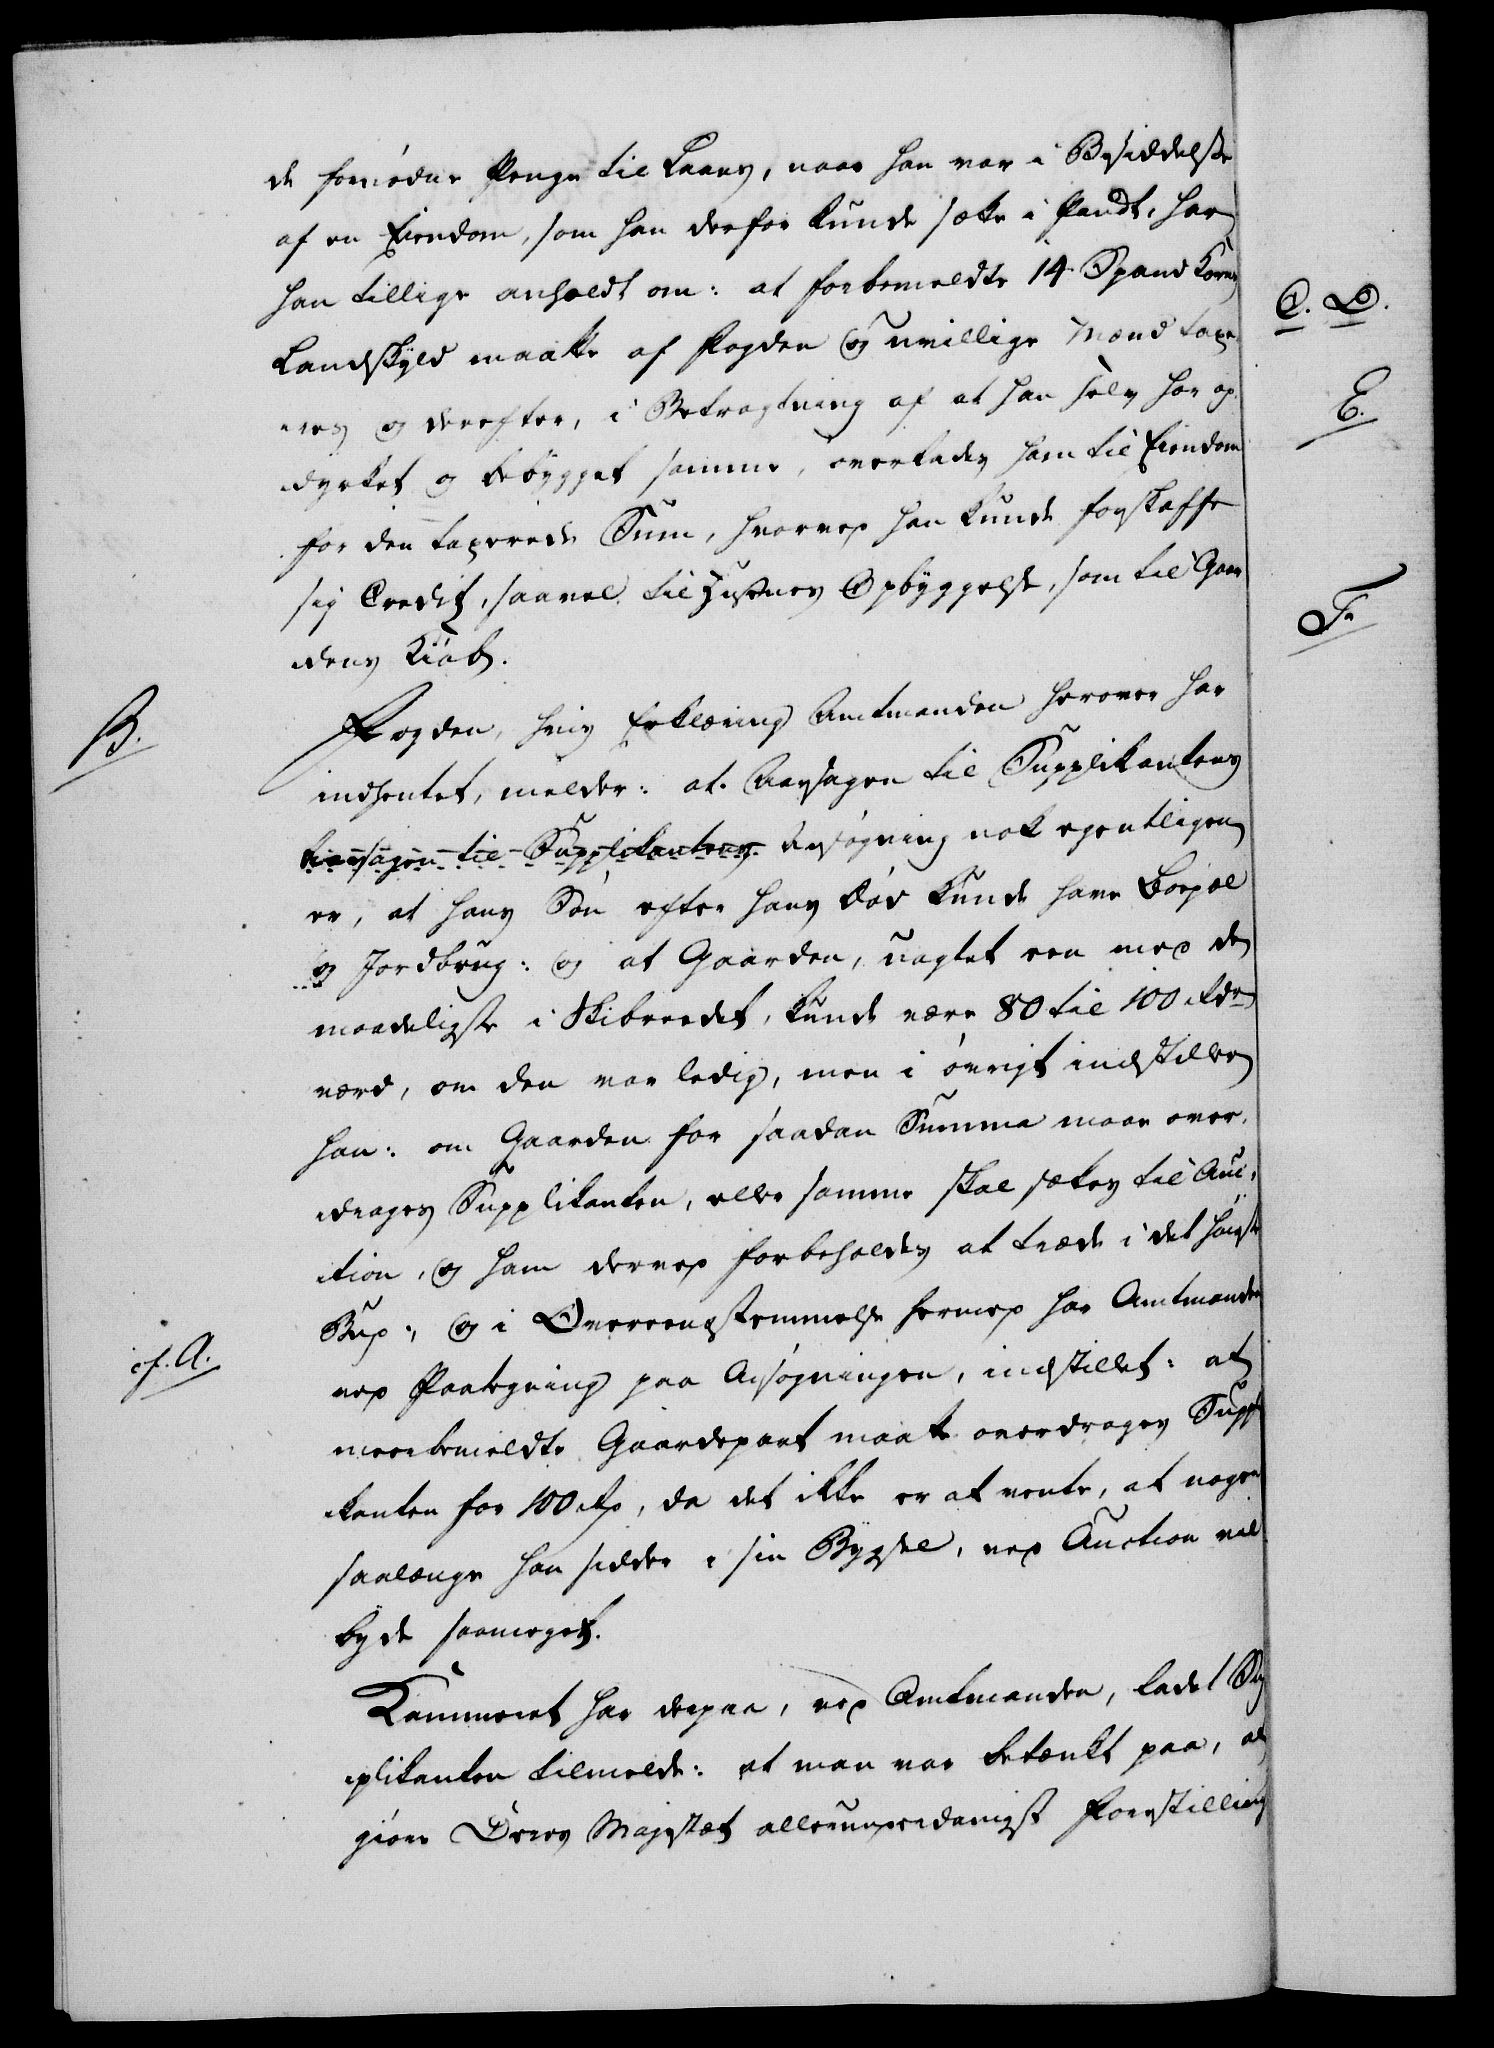 de fornødne Penge til Laans, naar han var i Besiddelse
af en Eiendom, som han derfor kunde sætte i Pandt, har
han tillige anholdt om: at forbemeldte 14 Spand Korns
C. D.
Landskyld maatte af Fogden og uvillige Mænd taxe-
E.
res og derefter, i Betragtning af at han selv har op-
dyrket og bebygget samme, overlades ham til Eiendom
for den taxerede Sum, hvorved han kunde forskaffe
F.
sig Credit, saavel til Husenes Opbyggelse, som til Gaar-
dens Kiøb.
B.
Fogden, hvis Erklæring Amtmanden herover har
indhentet, melder: at Aarsagen til Supplikantens
Aarsagen til Supplikantens Ansøgning nok egentligen
er, at hans Søn efter hans Død kunde have Boepæl
og Jordbrug: og at Gaarden, uagtet een med de
maadeligste i Skibreedet, kunde være 80 til 100 Rdr
værd, om den var ledig, men i øvrigt indstiller
han: om Gaarden for saadan Summa maae over-
drages Supplikanten, eller samme skal sættes til Auc-
tion, og ham derved forbeholdes at træde i det høieste
Bud:, og i Overeensstemmelse hermed har Amtmanden
cf. A.
ved Paategning paa Ansøgningen, indstillet: at
meerbemeldte Gaardepart maatte overdrages Suppli-
kanten for 100 Rd, da det ikke er at vente, at nogen
saalænge han sidder i sin Bygsel, ved Auction vil
byde saameget.
Kammeret har derpaa, ved Amtmanden, ladet Sup-
plikanten tilmelde: at man var betænkt paa, at
giøre Deres Majestæt allerunderdanigst Forestilling